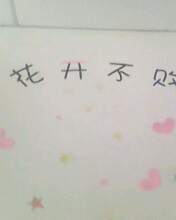 花开不败